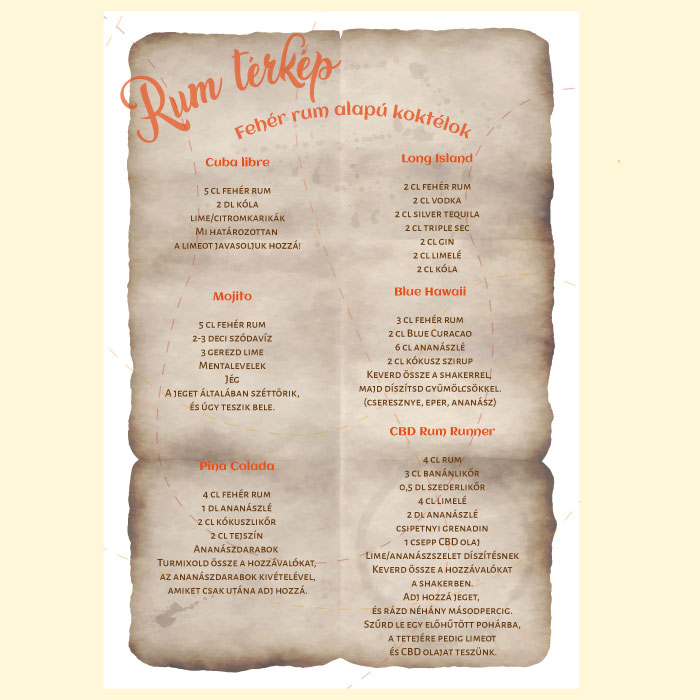 Rum térkép
Fehér rum alapú koktélok
Cuba libre
5 cl fehér rum
2 dl kóla
lime/citromkarikák
Mi határozottan
a limeot javasoljuk hozzá!
Mojito
5 cl fehér rum
2-3 deci szódavíz
3 gerezd lime
Mentalevelek
Jég
A jeget általában széttörik,
és úgy teszik bele.
Pina Colada
4 cl fehér rum
1 dl ananászlé
2 cl kókuszlikőr
2 cl tejszín
Ananászdarabok
Turmixold össze a hozzávalókat,
az ananászdarabok kivételével,
amiket csak utána adj hozzá.
Long Island
2 cl fehér rum
2 cl vodka
2 cl silver tequila
2 cl triple sec
2 cl gin
2 cl limelé
2 cl kóla
Blue Hawaii
3 cl fehér rum
2 cl Blue Curacao
6 cl ananászlé
2 cl kókusz szirup
Keverd össze a shakerrel,
majd díszítsd gyümölcsökkel.
(cseresznye, eper, ananász)
CBD Rum Runner
4 cl rum
3 cl banánlikőr
0,5 dl szederlikőr
4 cl limelé
2 dl ananászlé
csipetnyi grenadin
1 csepp CBD olaj
Lime/ananászszelet díszítésnek
Keverd össze a hozzávalókat
a shakerben.
Adj hozzá jeget,
és rázd néhány másodpercig.
Szűrd le egy előhűtött pohárba,
a tetejére pedig limeot
és CBD olajat teszünk.